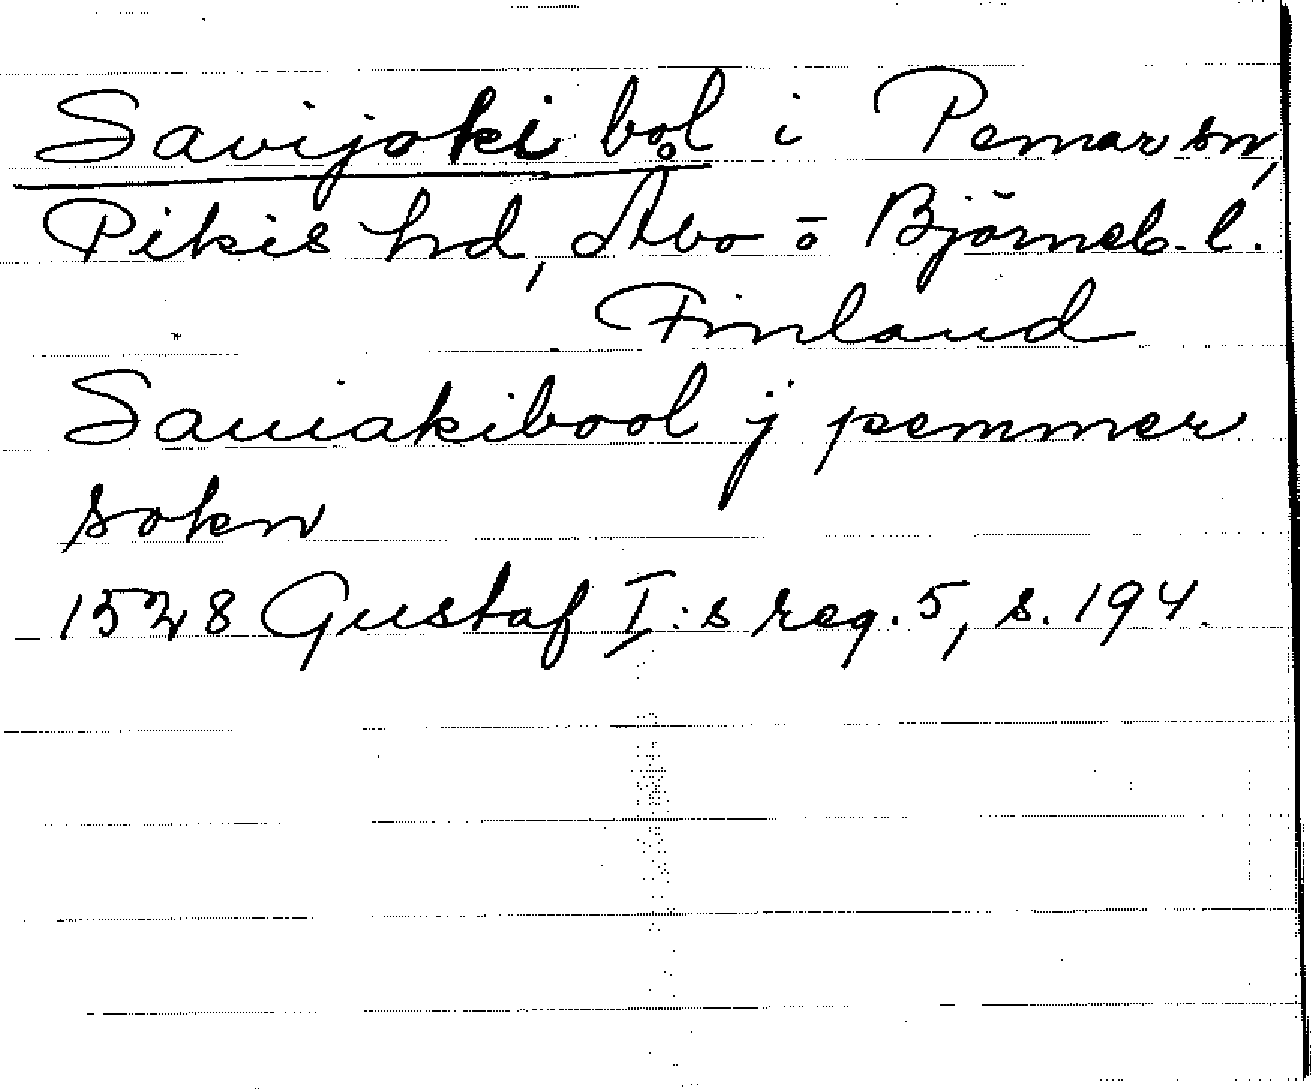 Savijoki bol i Pemar sn,
Pikis hd, Åbo o Björneb. l.
Finland
Sauiakibool j pemmer
sokn
1528 Gustaf I:s reg. 5, s. 194.